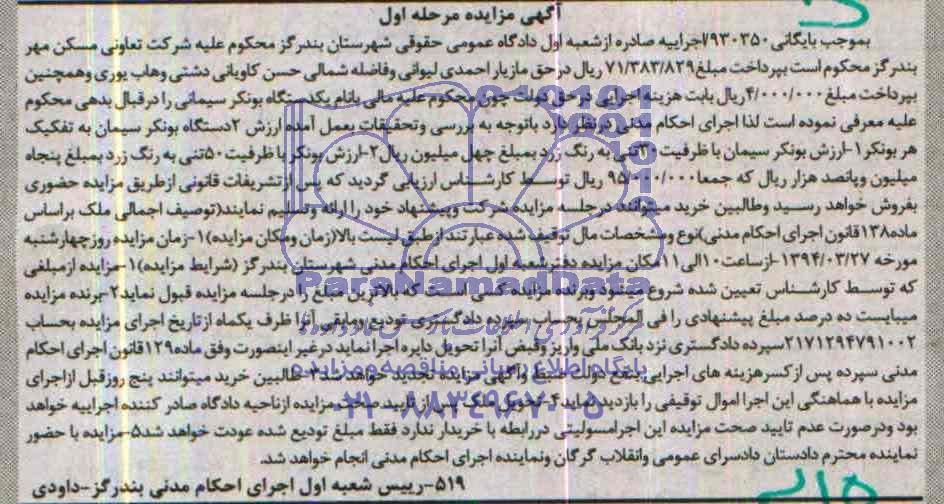 آگهی مزایده مرحله اول
بموجب بایگانی ۹۳۰۳۵۰/اجراییه صادره ازشعبه اول دادگاه عمومی حقوقی شهرستان بندرگز محکوم علیه شرکت تعاونی مسکن مهر
بندرگز محکوم است بپرداخت مبلغ ۷۱/۳۸۳/۸۲۹ ریال درحق مازیار احمدی لیوانی وفاضله شمالی حسن کاویانی دشتی وهاب یوری وهمچنین
بپرداخت مبلغ ۴/۰۰۰/۰۰۰ریال بابت هزینه اجرایی درحق دولت چون محکوم علیه مالی بانام یکدستگاه بونکر سیمانی را درقبال بدهی محکوم
علیه معرفی نموده است لذا اجرای احکام مدنی درنظر دارد باتوجه به بررسی وتحقیقات بعمل آمده ارزش ۲دستگاه بونکر سیمان به تفکیک
هر بونکر ۱-ارزش بونکر سیمان با ظرفیت ۳۰تنی به رنگ زرد بمبلغ چهل میلیون ریال ۲-ارزش بونکر با ظرفیت ۵۰تنی به رنگ زرد بمبلغ پنجاه
میلیون وپانصد هزار ریال که جمعا ۹۵/۰۰۰/۰۰۰ ریال توسط کارشناس ارزیابی گردید که پس ازتشریفات قانونی ازطریق مزایده حضوری
بفروش خواهد رسید وطالبین خرید میتوانند درجلسه مزایده شرکت وپیشنهاد خود را ارائه وتسلیم نمایند(توصیف اجمالی ملک براساس
ماده۱۳۸قانون اجرای احکام مدنی)نوع ومشخصات مال توقیف شده عبارتند ازطبق لیست بالا(زمان ومکان مزایده)۱-زمان مزایده روزچهارشنبه
مورخه ۱۳۹۴/۰۳/۲۷ -ازساعت ۱۰الی ۱۱مکان مزایده دفترشعبه اول اجرای احکام مدنی شهرستان بندرگز (شرایط مزایده)۱-مزایده ازمبلغی
که توسط کارشناس تعیین شده شروع میشود وبرنده مزایده کسی است که بالاترین مبلغ را درجلسه مزایده قبول نماید۲-برنده مزایده
میبایست ده درصد مبلغ پیشنهادی را فی المجلس وبحساب سپرده دادگستری تودیع ومابقی آنرا ظرف یکماه ازتاریخ اجرای مزایده بحساب
۲۱۷۱۲۹۴۷۹۱۰۰۲سپرده دادگستری نزد بانک ملی واریز وقبض آنرا تحویل دایره اجرا نماید درغیر اینصورت وفق ماده۱۲۹قانون اجرای احکام
مدنی سپرده پس ازکسرهزینه های اجرایی بنفع دولت ضبط وآگهی مزایده تجدید خواهد شد۳-طالبین خرید میتوانند پنج روزقبل ازاجرای
مزایده با هماهنگی این اجرا اموال توقیفی را بازدید نماید۴-تحویل ملک پس از تایید صحت مزایده ازناحیه دادگاه صادر کننده اجراییه خواهد
بود ودرصورت عدم تایید صحت مزایده این اجرامسولیتی دررابطه با خریدار ندارد فقط مبلغ تودیع شده عودت خواهد شد۵-مزایده با حضور
نماینده محترم دادستان دادسرای عمومی وانقلاب گرگان ونماینده اجرای احکام مدنی انجام خواهد شد.
۵۱۹-رییس شعبه اول اجرای احکام مدنی بندرگز-داودی
ParsNamadData
پایگاه اطلاع رسانی مناقصه و مزایده
۰۲۱-۸۸۳۴۹۶۷۰-۵